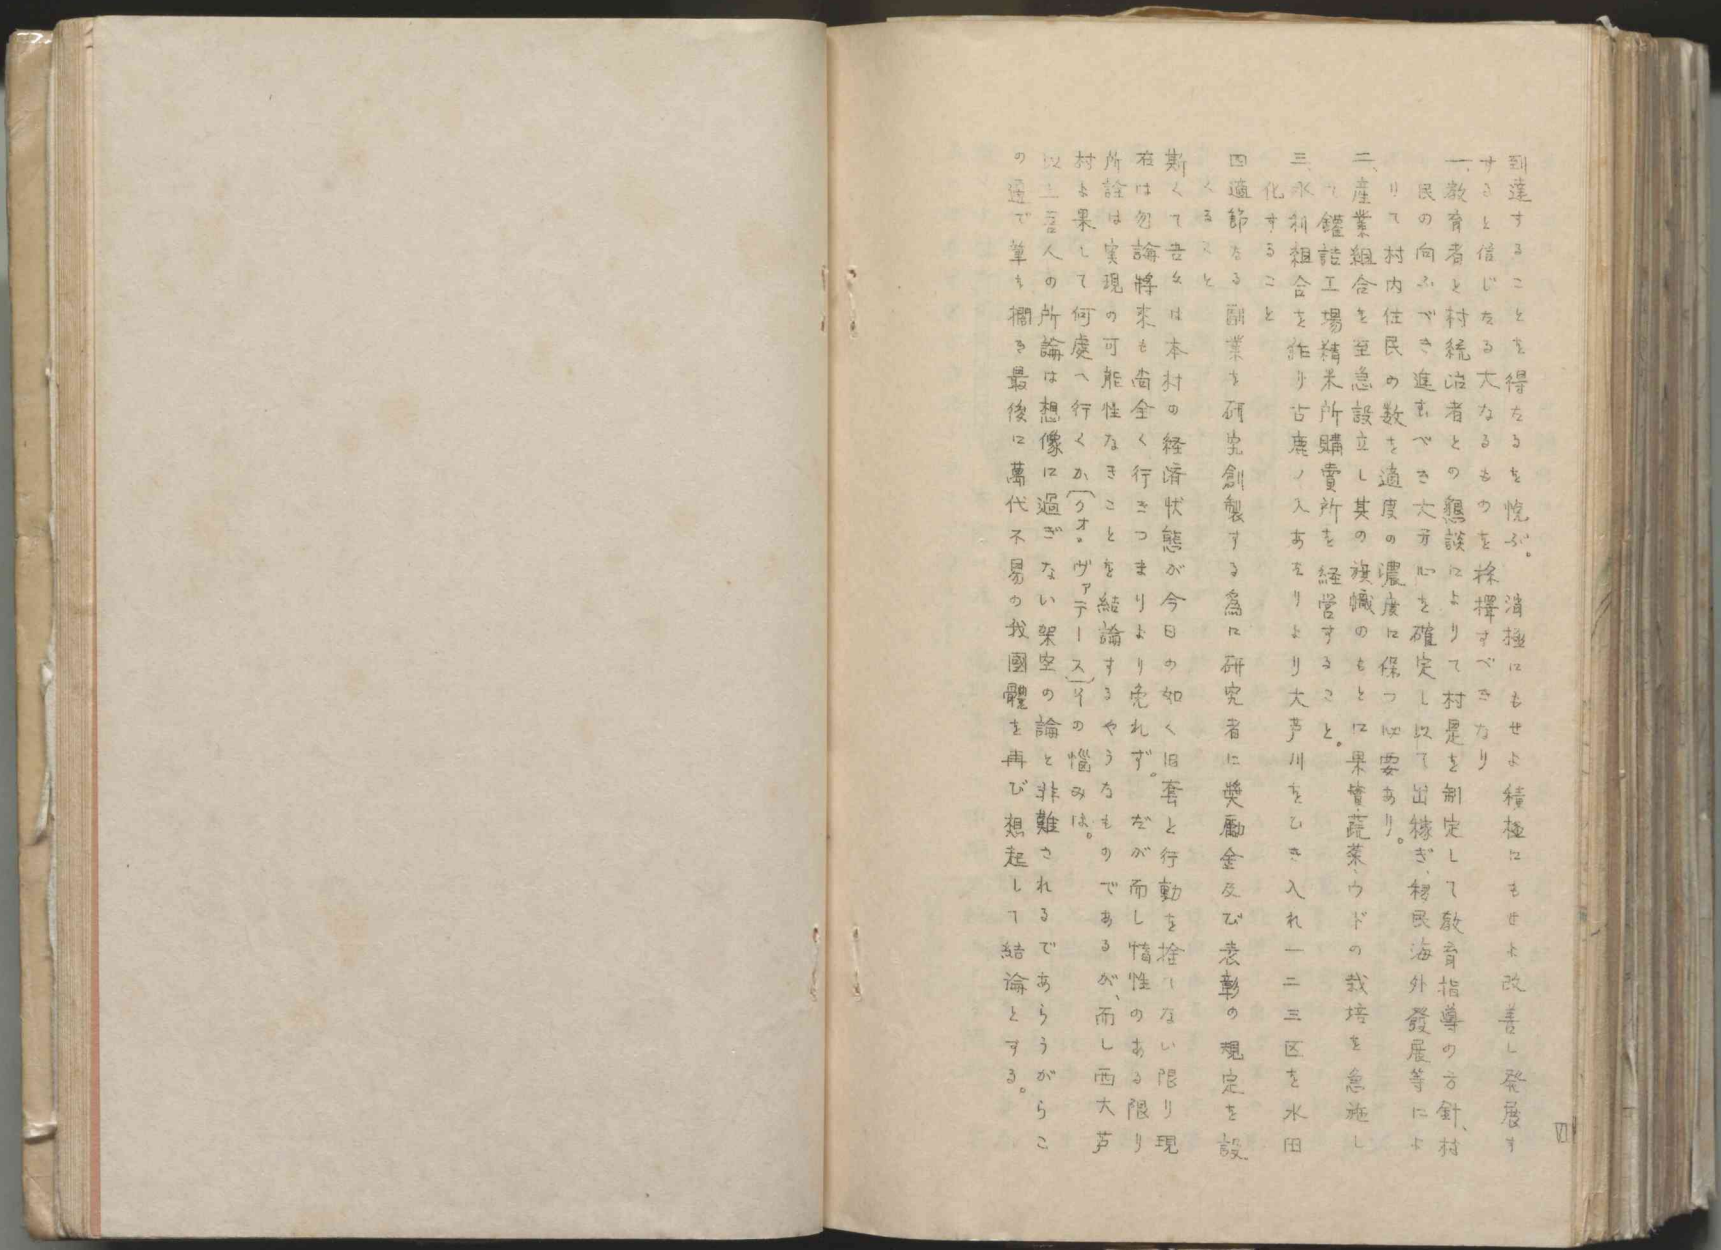 到達することを得たるを悦ぶ。消極にもせよ積極にもせよ改善し発展す
すると信じたる大なるものを採擇すべきなり
一、教育者と村統治者との懇談によりて村是を制定して教育指導の方針、村
民の向ふべき進むべき大方心を確定し以て出稼ぎ、移民海外發展等によ
りて村内住民の数を適度の濃度に保つ必要あり。
二、産業組合を至急設立し其の旗幟のもとに果實、蔬菜、ウドの栽培を急施し
て鑵詰工場精米所購賣所を経営すること。
三、水利組合を作り古鹿ノ入あたりより大芦川をひき入れ一二三区を水田
化すること
四、適節なる副業を研究創製する為に研究者に奬勵金及び表彰の規定を設
くること
斯くて吾々は本村の経済状態が今日の如く旧套と行動を捨しない限り現
在は勿論將来も尚全く行きつまりより免れず。だが而し惰性のある限り
所詮は実現の可能性なきことを結論するやうなものであるが、而し西大芦
村よ果して何處へ行くか(クオ。ヴァデース)その惱みは。
以上吾人の所論は想像に過ぎない架空の論と非難されるであらうがらこ
の邊で筆を擱る最後に萬代不易の我國體を再び想起して結論とする。
VII